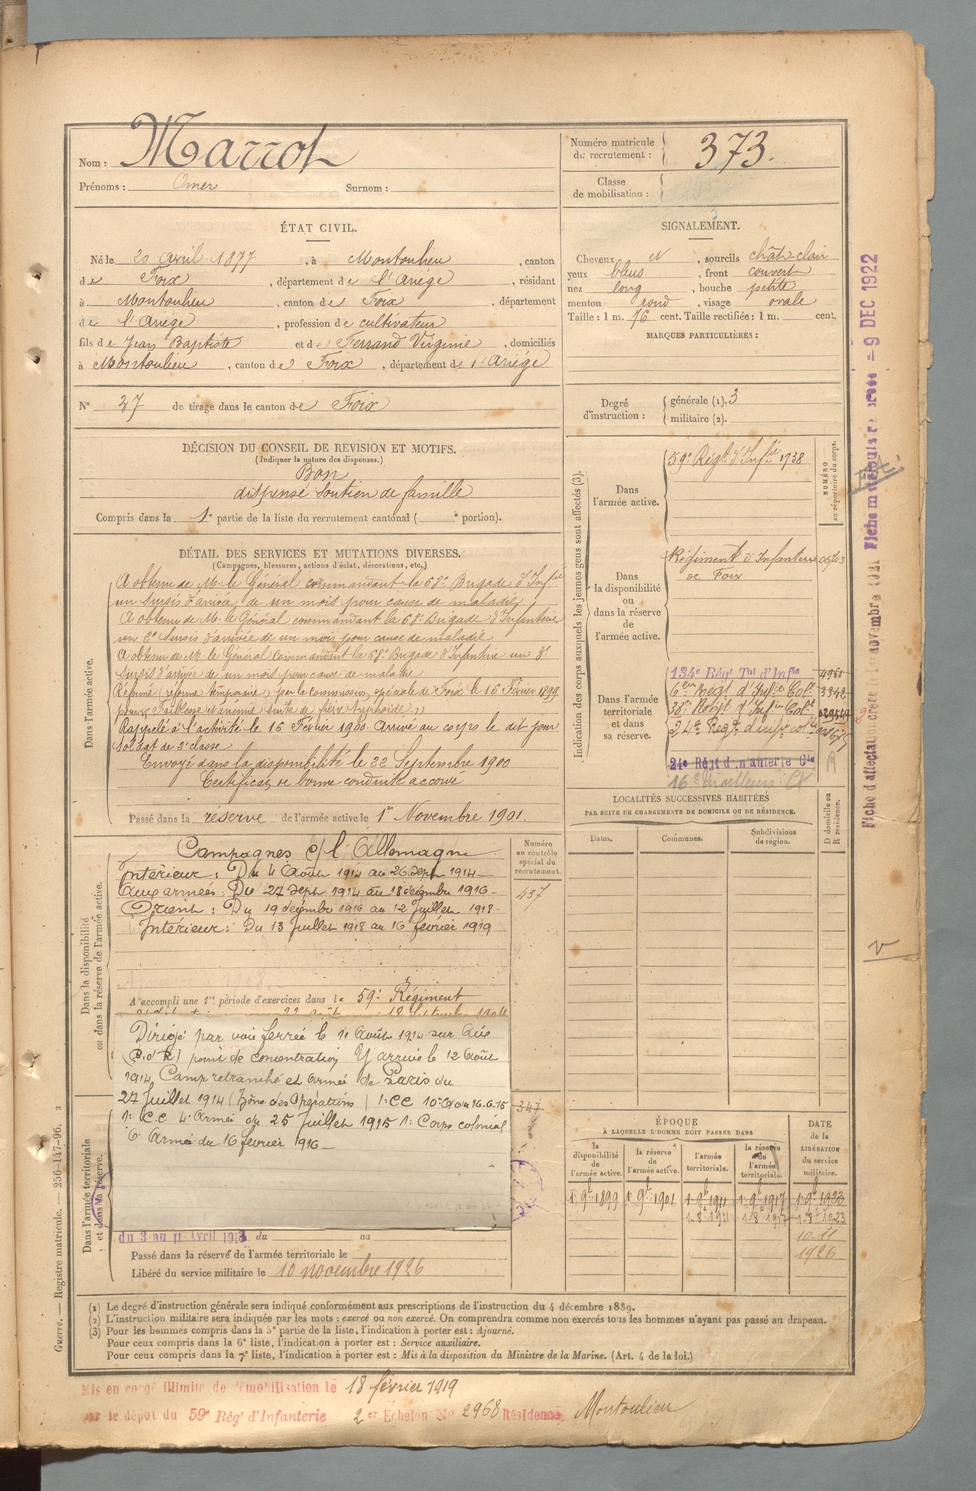 Nom : Marrot
Prénoms : Omer Surnom :
Numéro matricule du recrutement : 373.
Classe de mobilisation :
ÉTAT CIVIL.
Né le 20 avril 1877, à Montoulieu, canton
de Foix, département de l'Ariège, résidant
à Montoulieu, canton de Foix, département
de l'Ariège, profession de cultivateur
fils de Jean Baptiste et de Ferrand Virginie, domiciliés
à Montoulieu, canton de Foix, département de l'Ariège
N° 27 de tirage dans le canton de Foix
SIGNALEMENT.
Cheveux N, sourcils chât-clair
yeux bleus, front couvert
nez long, bouche petite
menton rond, visage ovale
Taille : 1 m. 76 cent. Taille rectifiée : 1 m. cent.
MARQUES PARTICULIÈRES :
Degré d'instruction : générale (1). 3
militaire (2).
DÉCISION DU CONSEIL DE REVISION ET MOTIFS.
(Indiquer la nature des dispenses.)
Bon
dispensé soutien de famille
Compris dans la 1e partie de la liste du recrutement cantonal ( e portion).
DÉTAIL DES SERVICES ET MUTATIONS DIVERSES.
(Campagnes, blessures, actions d'éclat, décorations, etc.)
Dans l'armée active.
A obtenu de Mr le Général commandant la 68e Brigade d'Infie
un sursis d'arrivée de un mois pour cause de maladie
A obtenu de Mr le Général commandant la 68e Brigade d'Infanterie
un 2e sursis d'arrivée de un mois pour cause de maladie
A obtenu de Mr le Général commandant la 68e Brigade d'Infanterie un 3e
sursis d'arrivée de un mois pour cause de maladie
Réformé (réforme temporaire) par la commission spéciale de Foix le 16 Février 1899
pour « Faiblesse et anémie suite de fièvre typhoïde »
Rappelé à l'activité le 16 Février 1900. Arrivé au corps le dit jour
Soldat de 2e classe
Envoyé dans la disponibilité le 22 Septembre 1900
Certificat de bonne conduite accordé
Passé dans la réserve de l'armée active le 1er Novembre 1901.
Indication des corps auxquels les jeunes gens sont affectés (3).
NUMÉRO au répertoire du corps.
Dans l'armée active.
59e Régt d'Infie 1738
Dans la disponibilité ou dans la réserve de l'armée active.
Régiment d'Infanterie
de Foix
Dans l'armée territoriale et dans sa réserve.
134e Régt Tal d'Infie
6eme Régt d'Infie Cole
38e Régt d'Infie Colt
24e Régt d'infie cole
24e Régt d'Infanterie Cle
LOCALITÉS SUCCESSIVES HABITÉES
PAR SUITE DE CHANGEMENTS DE DOMICILE OU DE RÉSIDENCE.
D domicile ou R résidence.
Dates. Communes. Subdivisions de région.
Dans la disponibilité ou dans la réserve de l'armée active.
Numéro au contrôle spécial du recrutement.
437
Campagnes c/ l'Allemagne
Intérieur : Du 4 Août 1914 au 26 Sept 1914
Aux armées : Du 27 Sept 1914 au 18 décembre 1916
Orient : Du 19 décembre 1916 au 12 Juillet 1918
Intérieur : Du 13 Juillet 1918 au 16 février 1919
A accompli une 1re période d'exercices dans le 59e Régiment
Dirigé par voie ferrée le 11 Août 1914 sur Aix
(B. d R) point de concentration Y arrivé le 12 Août
1914, Camp retranché et Armée de Paris du
27 Juillet 1914 (Zône des Opérations) 1e CC 10e au 16.6.15
1e C.C 4e Armée du 25 Juillet 1915 1e Corps colonial
6e Armée du 16 février 1916
347
Dans l'armée territoriale et dans sa réserve.
du 3 au 11 Avril du au
Passé dans la réserve de l'armée territoriale le
Libéré du service militaire le 10 novembre 1926
ÉPOQUE
À LAQUELLE L'HOMME DOIT PASSER DANS
la disponibilité de l'armée active. la réserve de l'armée active. l'armée territoriale. la réserve de l'armée territoriale.
DATE de la LIBÉRATION du service militaire.
1 9bre 1899 1 9bre 1901 1 9bre 1911 1 9bre 1917 1 9bre 1923
1 8bre 1911 1 8bre 1917 1 8bre 1923
10.11
1926
(1) Le degré d'instruction générale sera indiqué conformément aux prescriptions de l'instruction du 4 décembre 1889.
(2) L'instruction militaire sera indiquée par les mots : exercé ou non exercé. On comprendra comme non exercés tous les hommes n'ayant pas passé au drapeau.
(3) Pour les hommes compris dans la 5e partie de la liste, l'indication à porter est : Ajourné.
Pour ceux compris dans la 6e liste, l'indication à porter est : Service auxiliaire.
Pour ceux compris dans la 7e liste, l'indication à porter est : Mis à la disposition du Ministre de la Marine. (Art. 4 de la loi.)
Mis en congé illimité de démobilisation le 18 février 1919
par le dépôt du 59e Rég' d'Infanterie 2er Echelon No 2968 Résidence, Montoulieu
Guerre. — Registre matricule. — 256-147-96.
9 DEC 1922